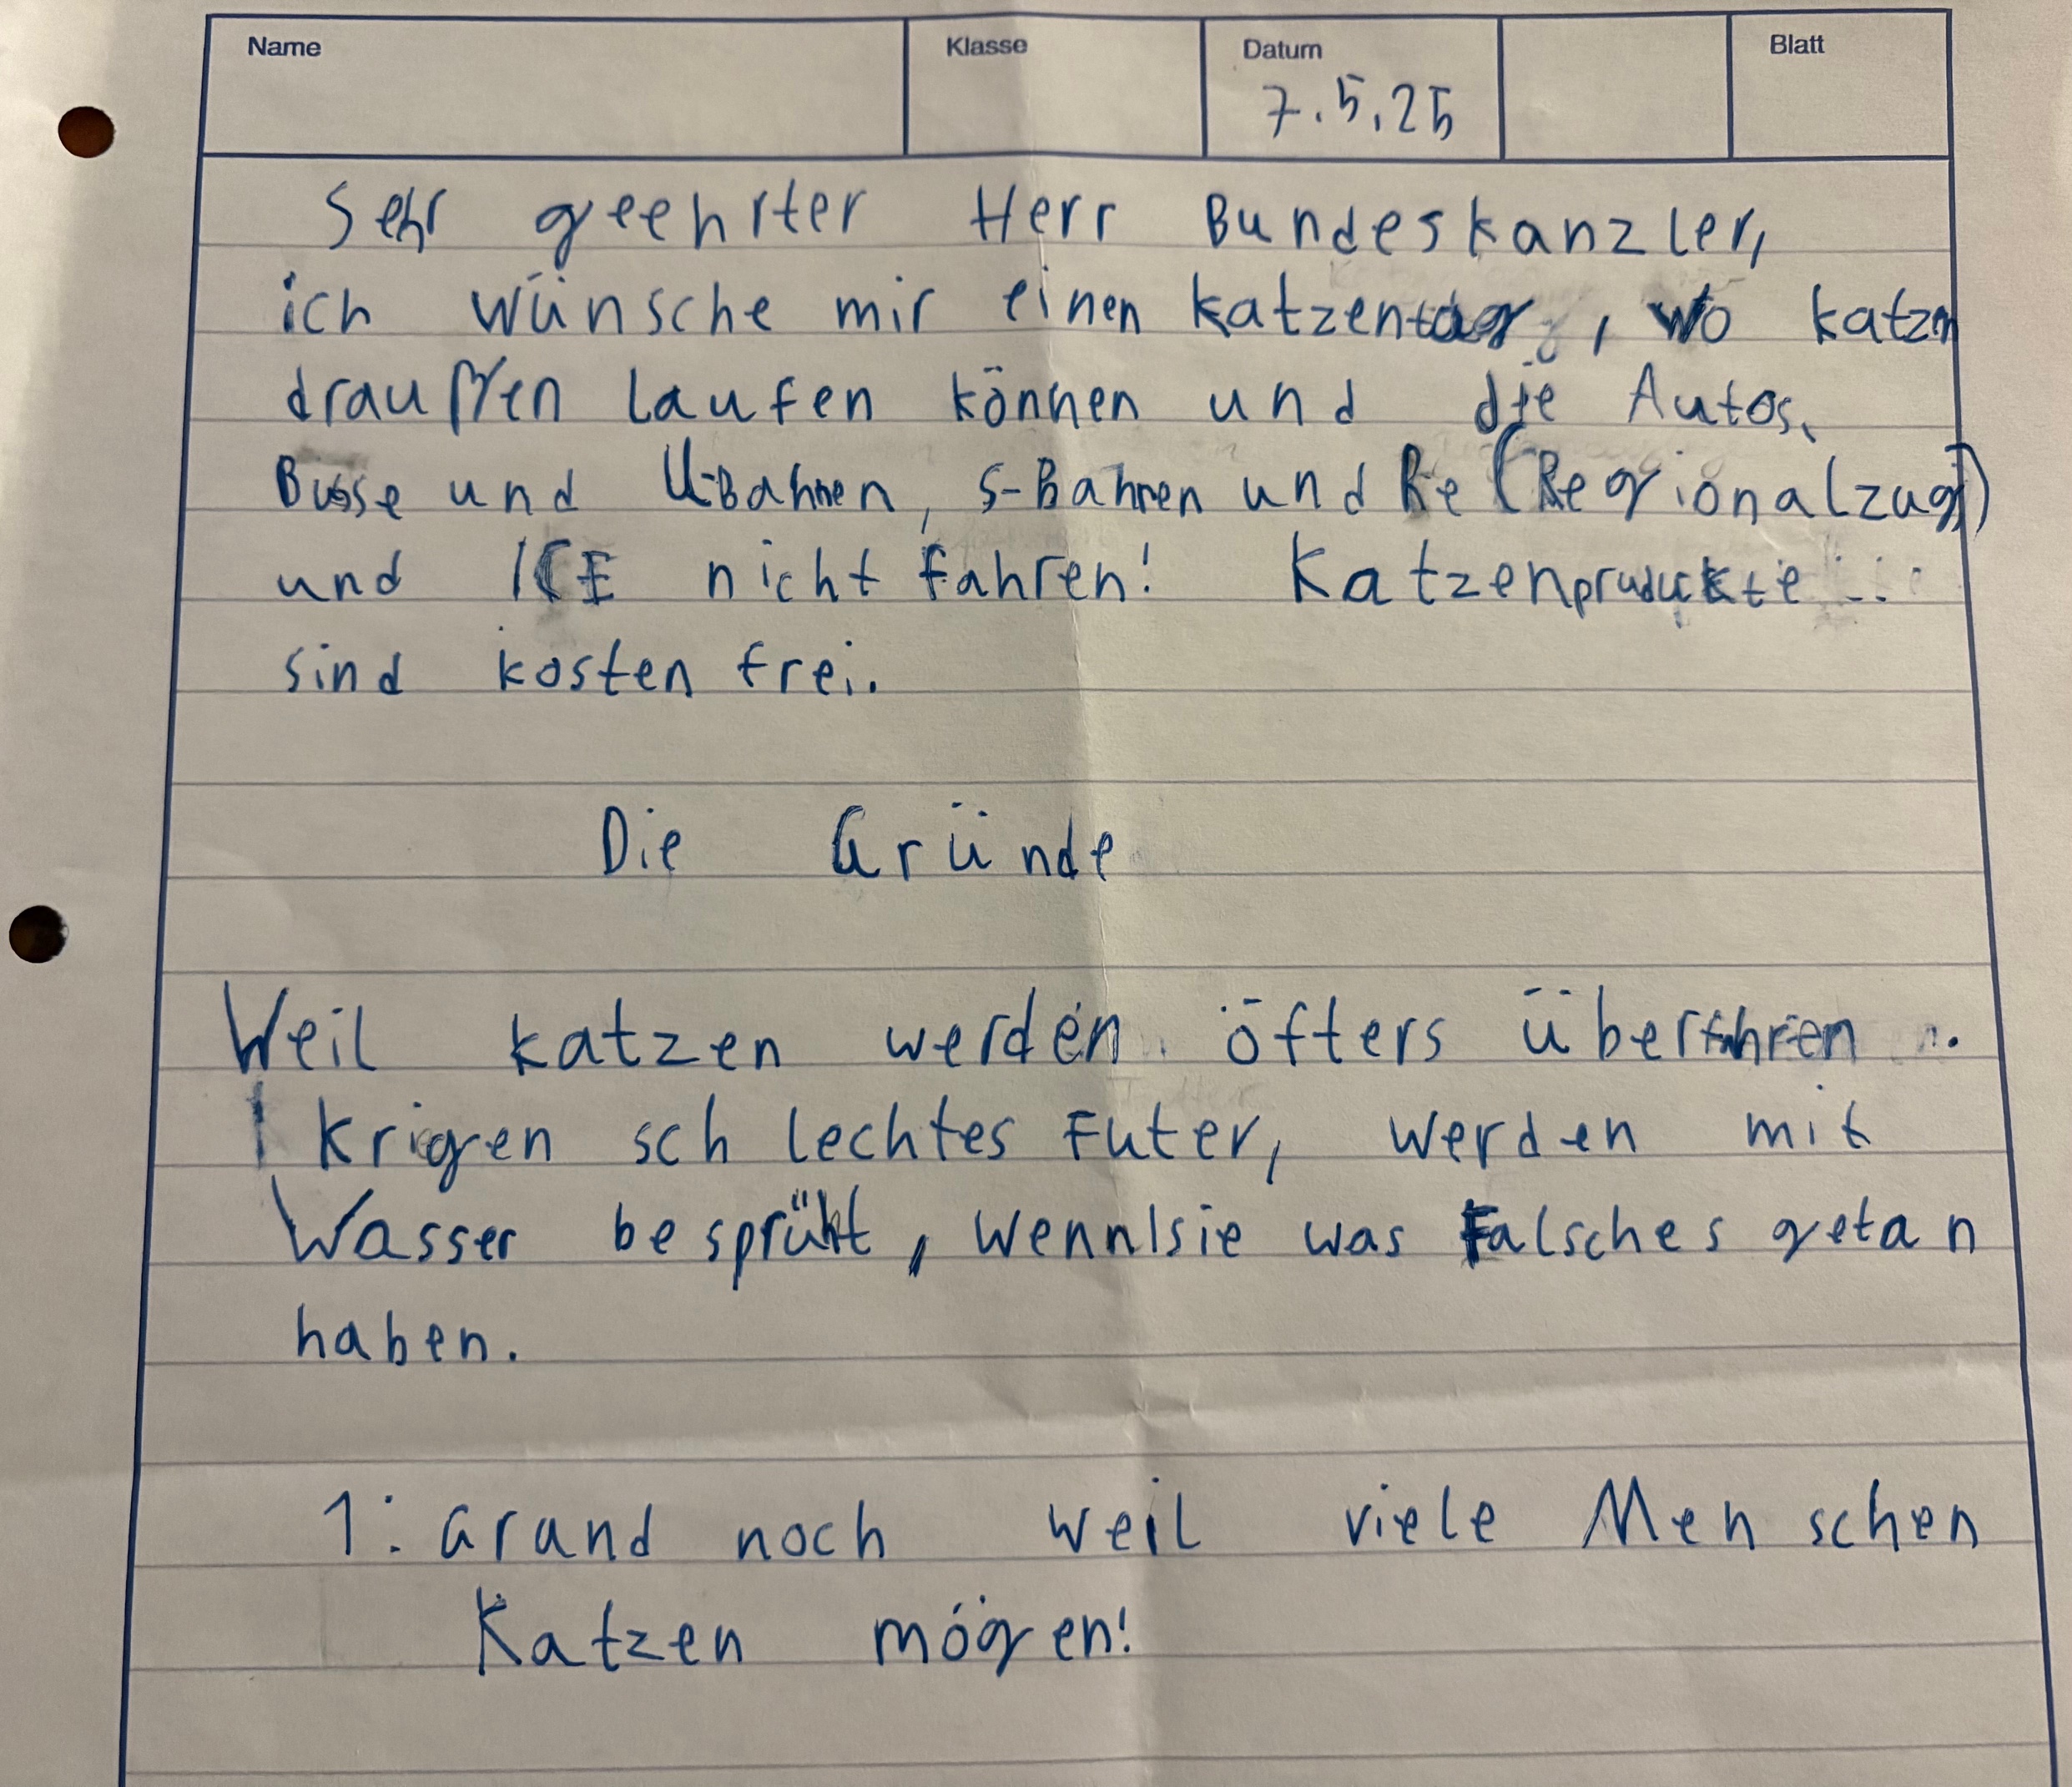 Name Klasse Datum Blatt
7.5.25
Sehr geehrter Herr Bundeskanzler,
ich wünsche mir einen Katzentag, wo katzen
draußen laufen können und die Autos,
Busse und U-Bahnen, S-Bahnen und Re (Regionalzug)
und ICE nicht fahren! Katzenprudukte
sind kosten frei.
Die Gründe
Weil katzen werden öfters überfahren.
krigen schlechtes Futer, werden mit
Wasser besprüht, wenn sie was Falsches getan
haben.
1: Grund noch weil viele Menschen
Katzen mögen!